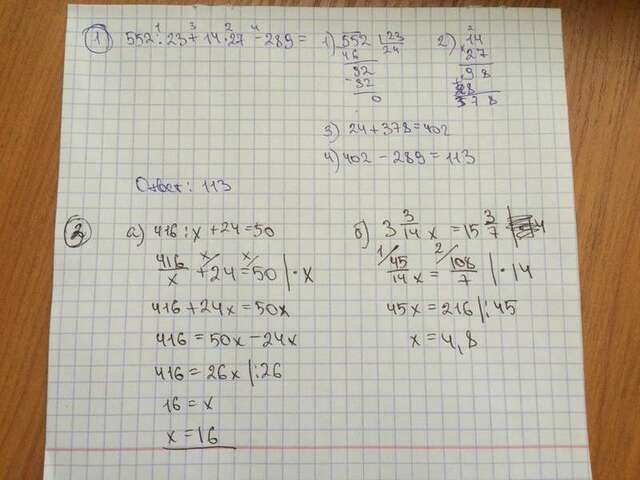 1 552 : 23 + 14 · 27 - 289 =
1 3 2 4
1) 552 | 23
46 24
92
- 92
0
2) 2
14
× 27
98
+ 28
378
3) 24 + 378 = 402
4) 402 - 289 = 113
Ответ: 113
2 а) 416 : x + 24 = 50
416/x + 24 = 50 | · x
416 + 24x = 50x
416 = 50x - 24x
416 = 26x | : 26
16 = x
x = 16
б) 3 3/14 x = 15 3/7
1/ 45/14 x = 2/ 108/7 | · 14
45x = 216 | : 45
x = 4,8